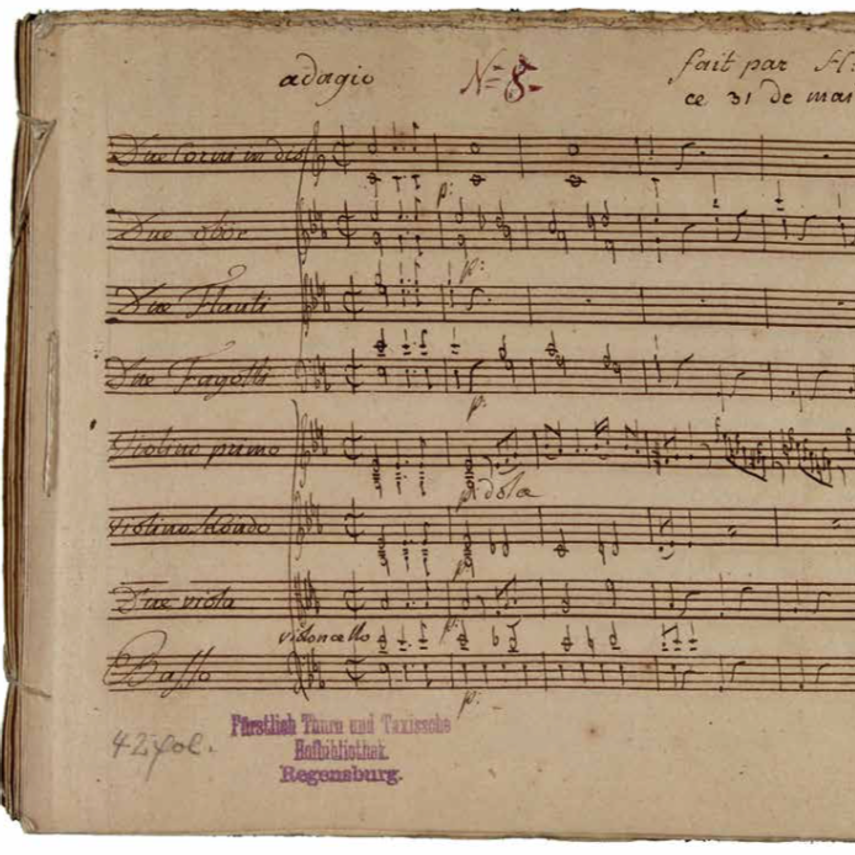 adagio N=8=
fait par H:
ce 31 de mar
Due Corni in dis
p:
Due oböe
p:
Due Flauti
Due Fagotti
p:
Violino primo
p dolce
violino secondo
p:
Due viola
violoncello p:
Basso
p:
42 fol.
Fürstlich Thurn und Taxissche
Hofbibliothek
Regensburg.